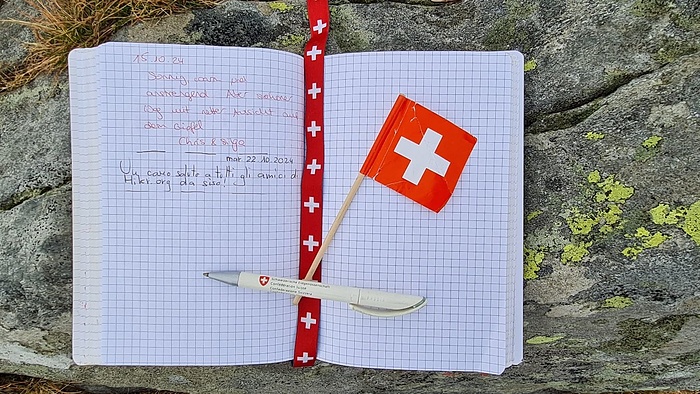 15.10.24
Sonnig warm und
anstrengend. Aber schöner
Weg mit toller Aussicht auf
dem Gipfel
Chris &
mar. 22.10.2024
Un caro saluto a tutti gli amici di
Hikr.org da siso!
Schweizerische Eidgenossenschaft
Confédération suisse
Confederazione Svizzera